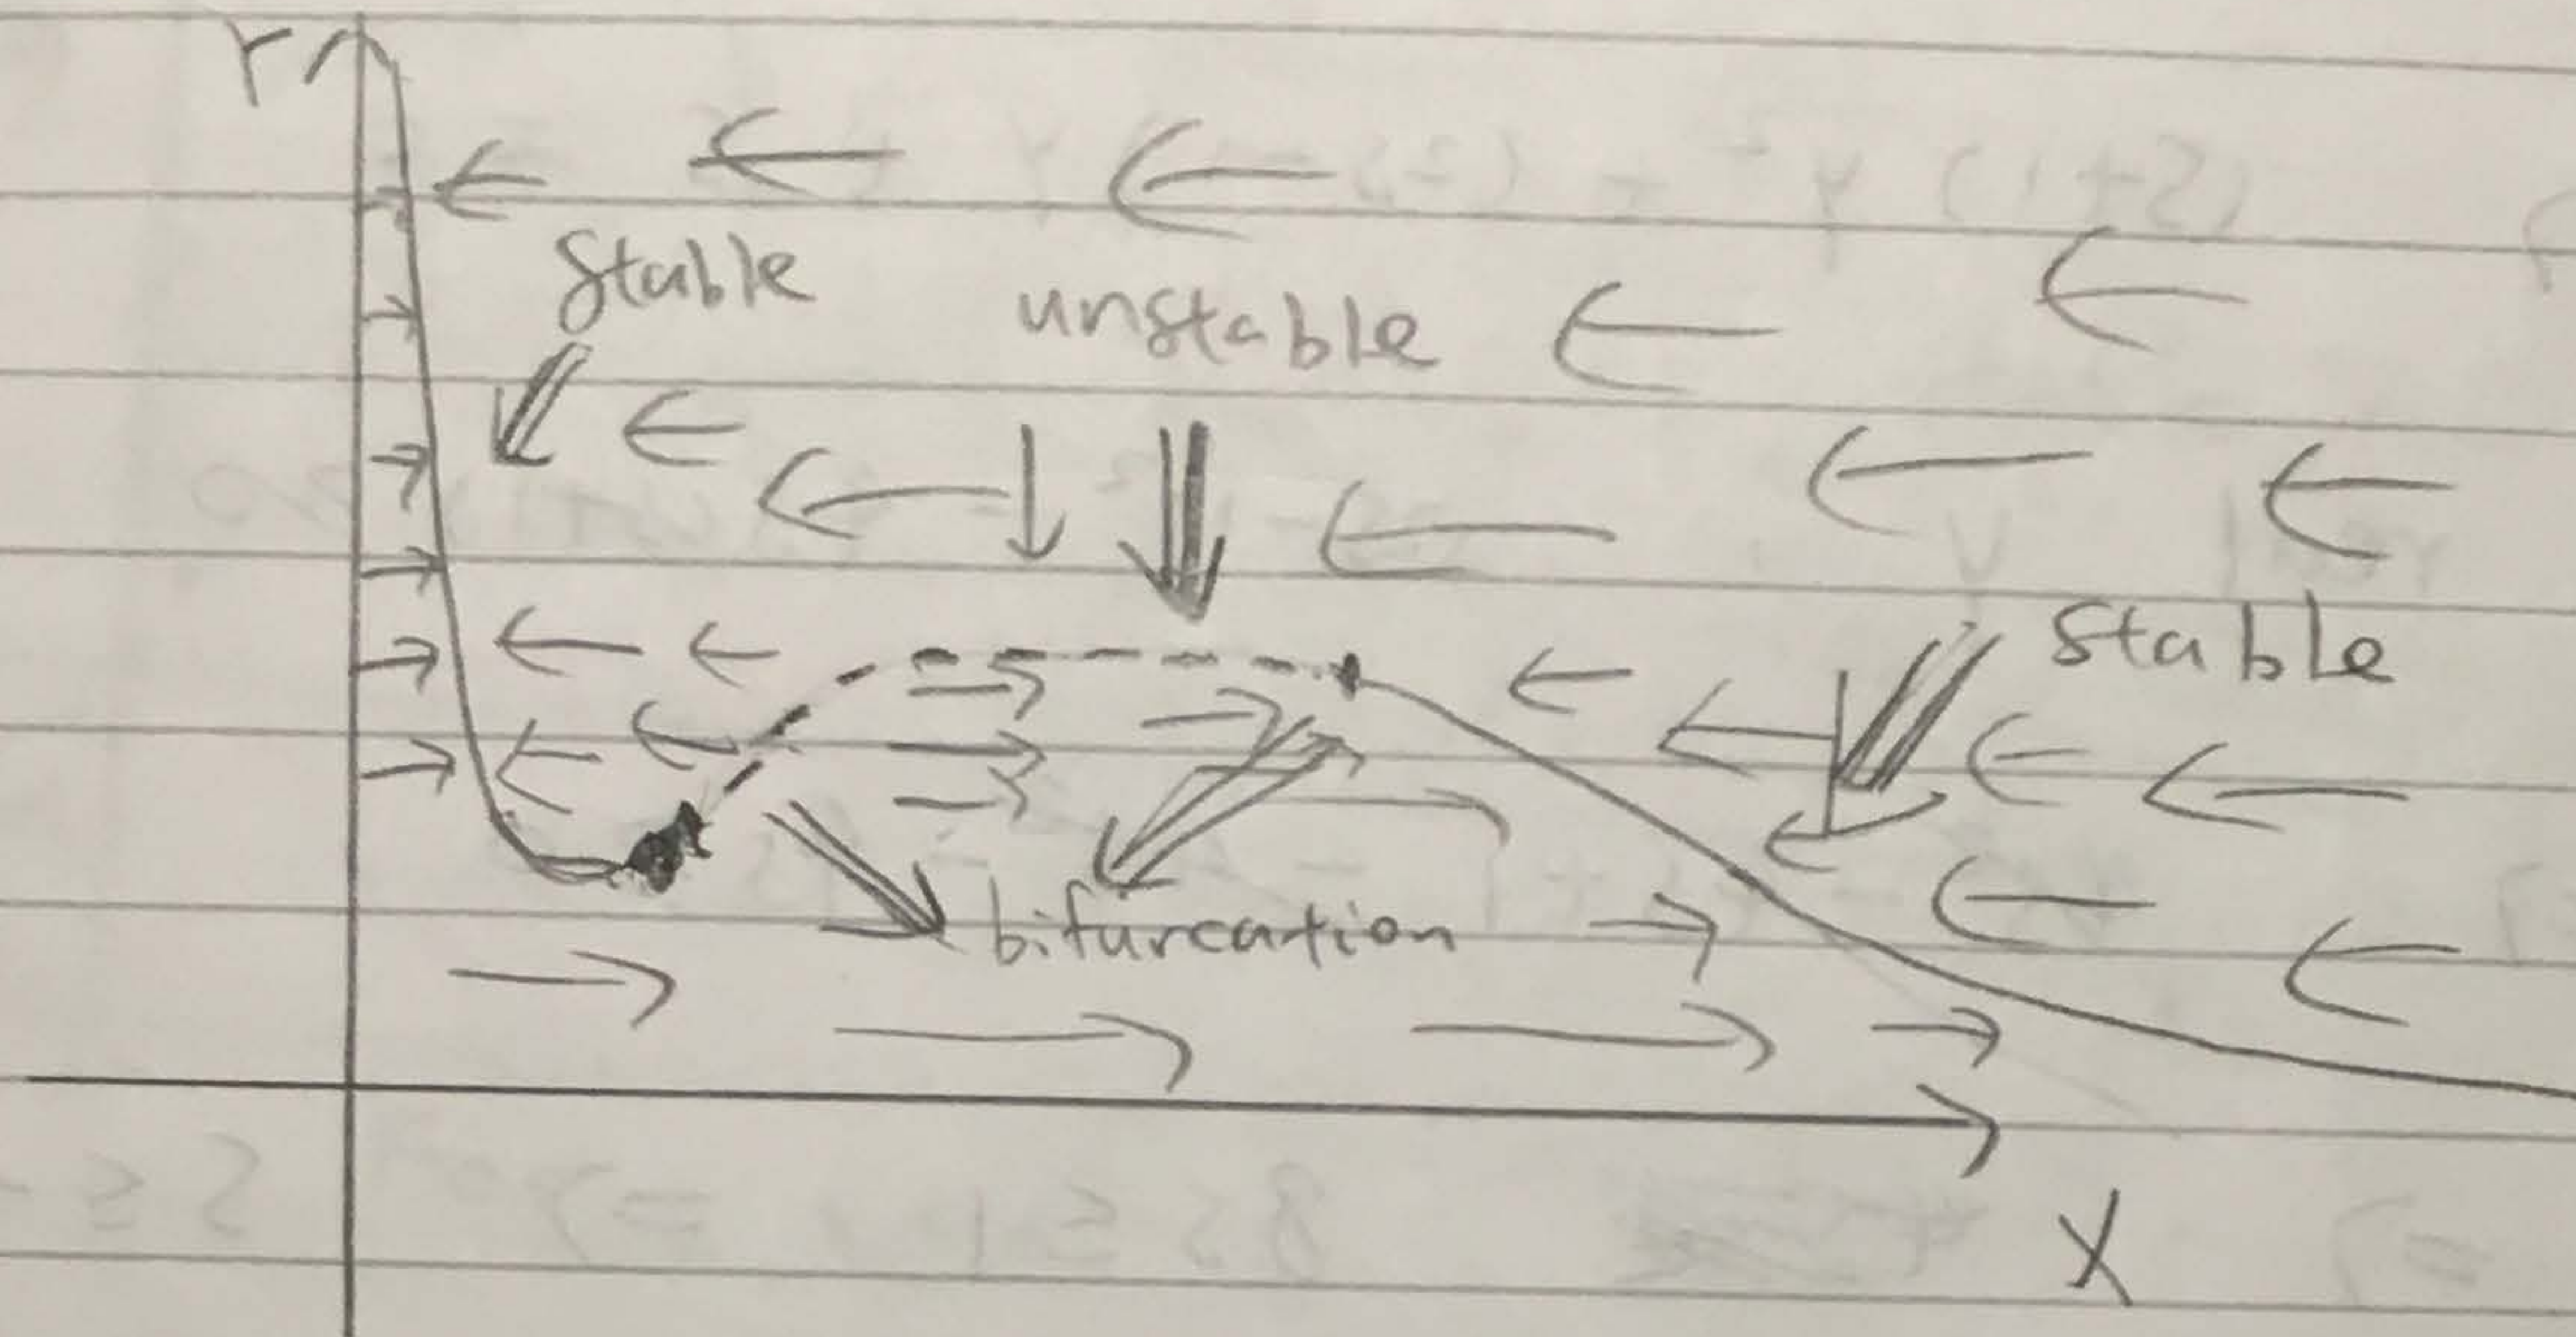 r
Stable
unstable
Stable
bifurcation
X